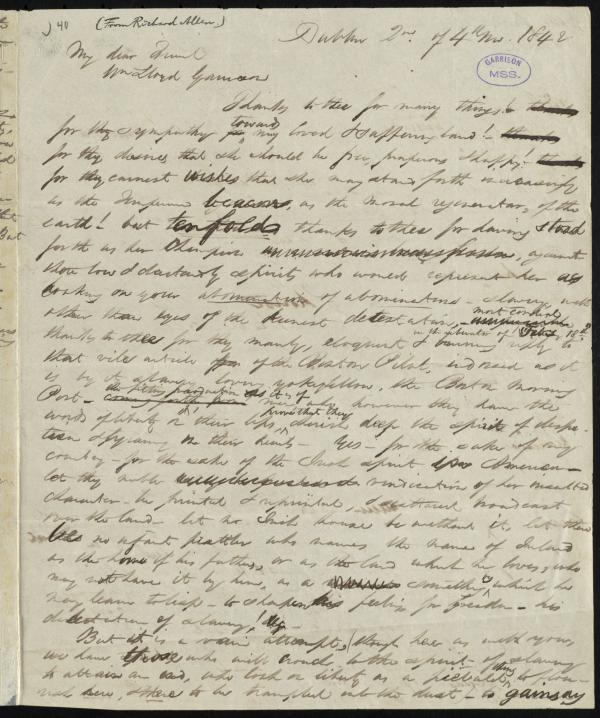 40 (From Richard Allen)
Dublin 2nd of 4th Mo. 1842
GARRISON
MSS.
My dear Friend
Wm Lloyd Garrison
Thanks to thee for many things!
toward
for thy sympathy my loved & suffering land!
for thy desires that she should be free, prosperous & happy!
for thy earnest wishes that she may stand forth
as the as the moral regenerator, of the
earth! but tenfold thanks to thee for having stood
forth as her Champion against
those low & dastardly spirits who would represent her as
looking on your abomination of abominations - slavery, with
most cordial
other than eyes of the keenest detestation,
in the Liberator of
thanks to thee for thy manly, eloquent & burning reply to
that vile article of the Boston Pilot, indorsed as it
is by it slavery loving yokefellow, the Boston Morning
Post - men who however they have the
prove that they
words of liberty on their lips, cherish deep the spirit of despo-
tism & tyranny in their hearts - Yes - for the sake of my
country - for the sake of the Irish spirit in America -
let thy noble vindication of her insulted
character - be printed & reprinted, & scattered broadcast
over the land - let no Irish house be without it, let there
be no infant prattler who names the name of Ireland
as the home of his fathers, or as the land which he loves, who
may not have it by him, as a something which he
may learn to lisp - to sharpen his feeling for freedom - his
detestation of slavery,
But it is a vain attempt, though here as with you,
we have those who will crouch to the spirit of slavery
thing
to attain an end, who look on liberty as a to flou-
rish here, & there to be trampled into the dust - to gainsay